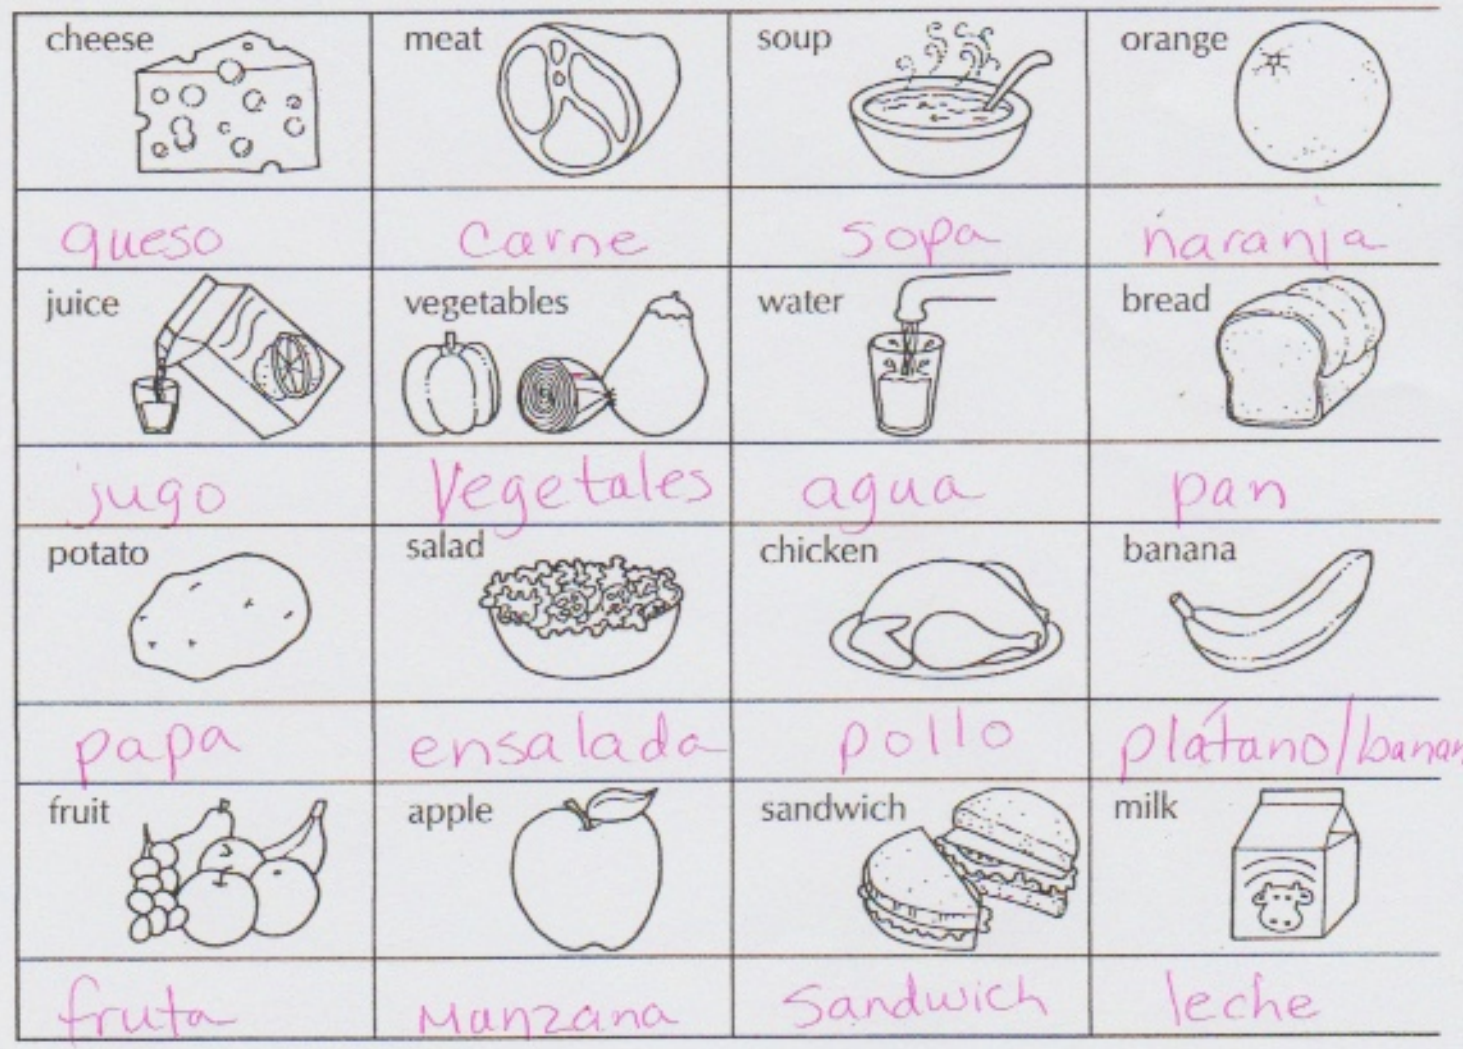 cheese meat soup orange
queso carne sopa naranja
juice vegetables water bread
jugo Vegetales agua pan
potato salad chicken banana
papa ensalada pollo plátano/banan
fruit apple sandwich milk
fruta Manzana Sandwich leche